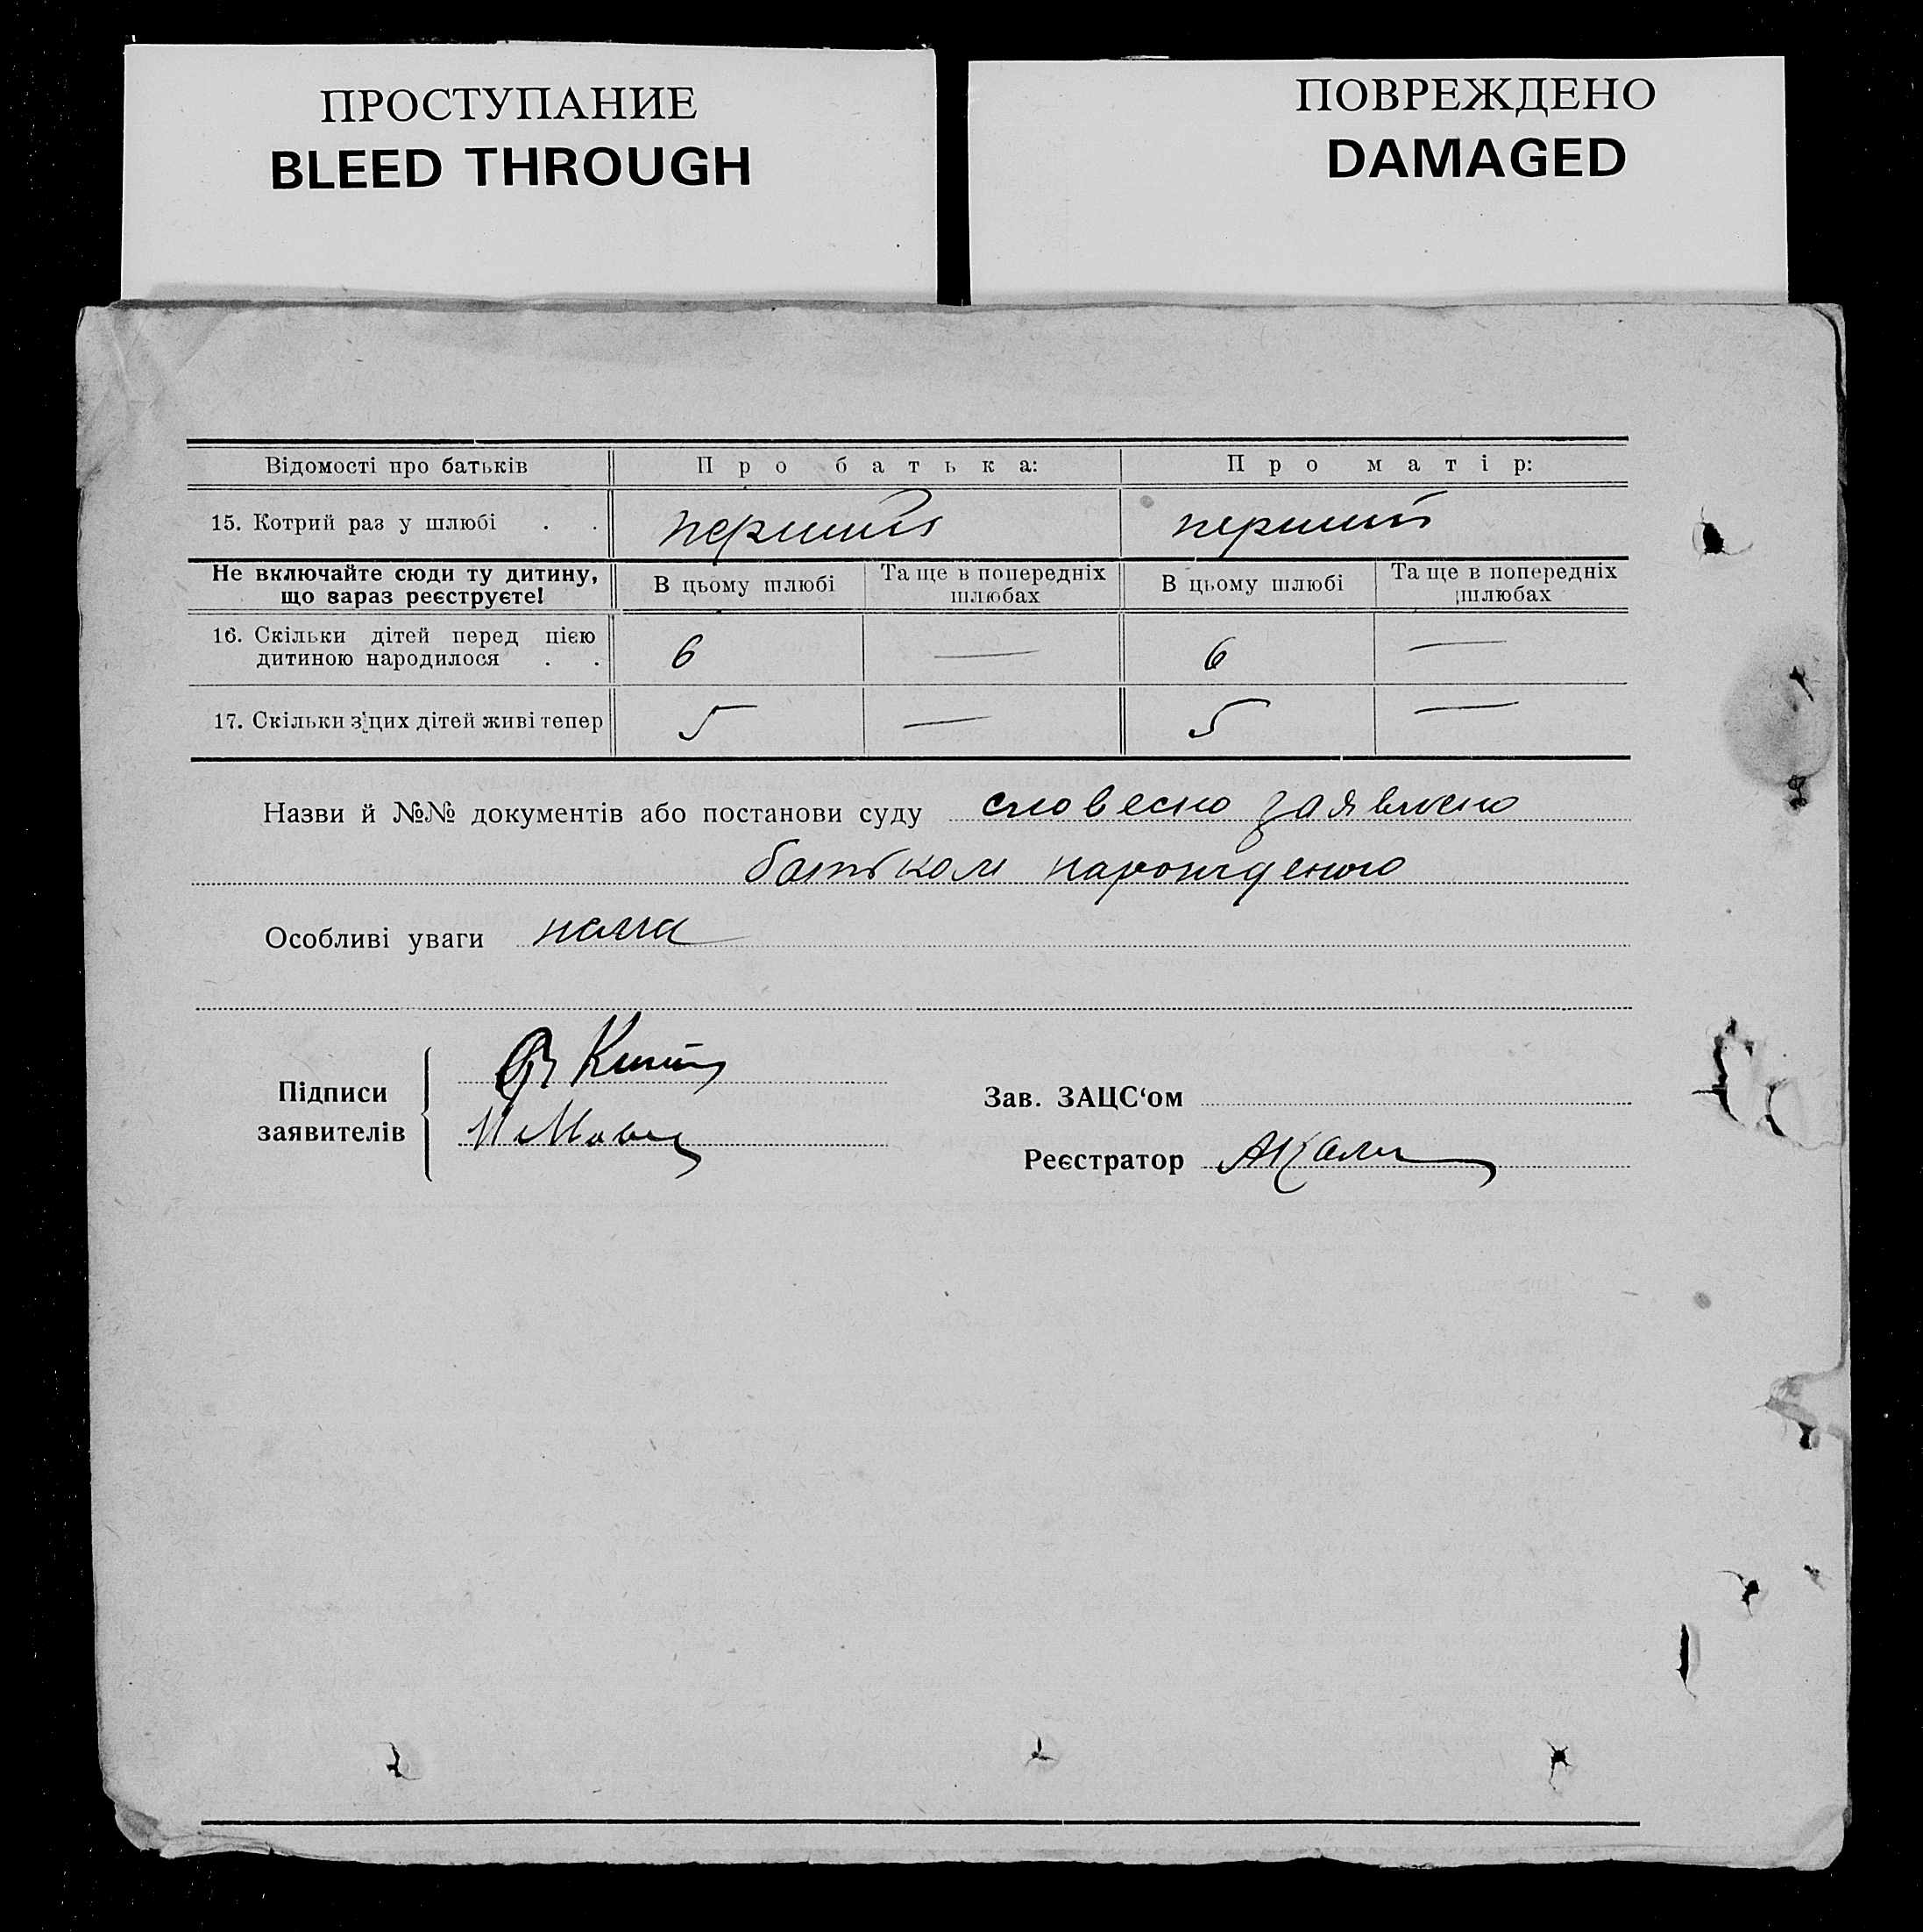 ПРОСТУПАНИЕ
BLEED THROUGH
ПОВРЕЖДЕНО
DAMAGED
Відомості про батьків Про батька: Про матір:
15. Котрий раз у шлюбі . . перший перший
Не включайте сюди ту дитину, що зараз реєструєте! В цьому шлюбі Та ще в попередніх шлюбах В цьому шлюбі Та ще в попередніх шлюбах
16. Скільки дітей перед цією
дитиною народилося . . 6 — 6 —
17. Скільки з цих дітей живі тепер 5 — 5 —
Назви й №№ документів або постанови суду словесно заявлено
батьком народженого
Особливі уваги нема
Підписи
заявителів
Зав. ЗАЦС‘ом
Реєстратор